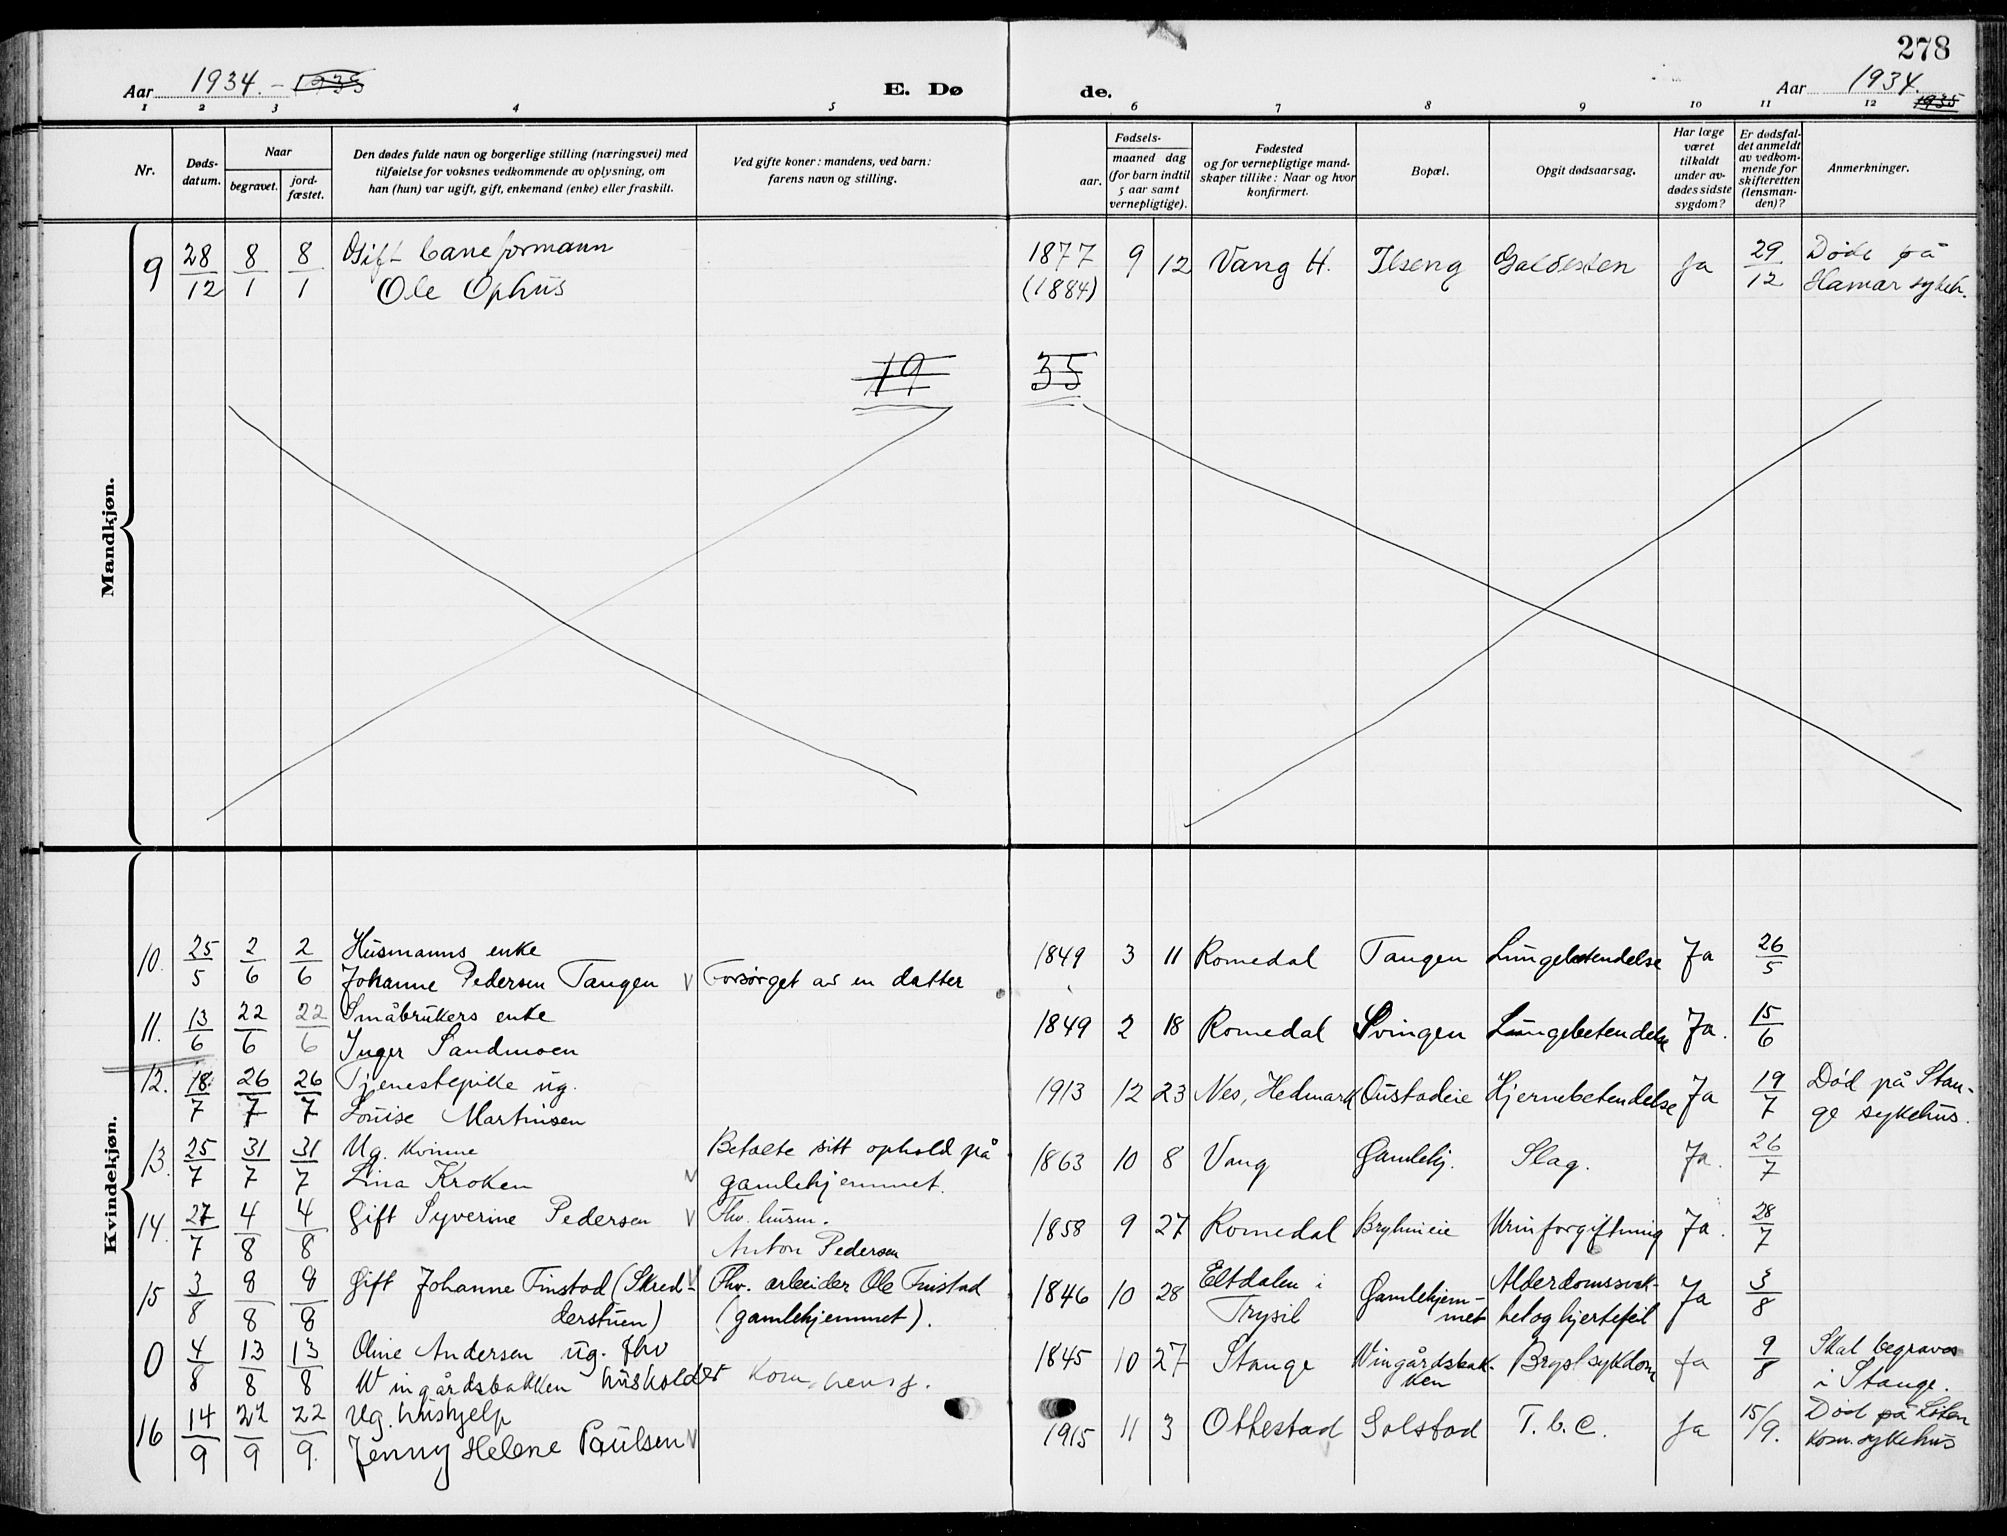 278
Aar 1934. - 1935
E. Dø
de.
Aar 1934.
1935
1 2 3 4 5 6 7 8 9 10 11 12
Nr.
Døds-
datum.
Naar
begravet.
jord-
fæstet.
Den dødes fulde navn og borgerlige stilling (næringsvei) med
tilføielse for voksnes vedkommende av oplysning, om
han (hun) var ugift, gift, enkemand (enke) eller fraskilt.
Ved gifte koner: mandens, ved barn:
farens navn og stilling.
Fødsels-
aar.
maaned dag
(for barn indtil
5 aar samt
vernepligtige).
Fødested
og for vernepligtige mand-
skaper tillike: Naar og hvor
konfirmert.
Bopæl.
Opgit dødsaarsag.
Har læge
været
tilkaldt
under av-
dødes sidste
sygdom?
Er dødsfal-
det anmeldt
av vedkom-
mende for
skifteretten
(lensman-
den)?
Anmerkninger.
Mandkjøn.
9 28/12 8/1 8/1 Gift baneformann
Ole Ophus
1877 9 12 Vang H. Ilseng Galdesten Ja 29/12 Døde på
(1884) Hamar sykeh.
19 35
Kvindekjøn.
10. 25/5 2/6 2/6 Husmanns enke
Johanne Pedersen Tangen V Forsørget av en datter 1849 3 11 Romedal Tangen Lungebetendelse Ja 26/5
11. 13/6 22/6 22/6 Småbrukers enke
Inger Sandmoen 1849 2 18 Romedal Svingen Lungebetendelse Ja. 15/6
12. 18/7 26/7 26/7 Tjenestepike ug.
Louise Martinsen 1913 12 23 Nes, Hedmark Oustadeie Hjernebetendelse Ja 19/7 Død på Stan-
ge sykehus.
13. 25/7 31/7 31/7 Ug. kvinne
Lina Kroken V Betalte sitt ophold på
gamlehjemmet. 1863 10 8 Vang Gamlehj. Slag. Ja. 26/7
14. 27/7 4/8 4/8 Gift Syverine Pedersen V Fhv. husm.
Anton Pedersen 1858 9 27 Romedal Bryhnieie Urinforgiftning Ja. 28/7
15 3/8 8/8 8/8 Gift Johanne Finstad (Skred- V Fhv. arbeider Ole Finstad
derstuen) (gamlehjemmet). 1846 10 28 Eltdalen i
Trysil Gamlehjem-
met Alderdomssvak-
het og hjertefeil Ja 3/8
0 4/8 13/8 13/8 Oline Andersen ug. fhv
Wingårdsbakken husholder 1845 10 27 Stange Wingårdsbak-
ken Brystsykdom Ja 9/8 Skal begraves
i Stange.
16 14/9 22/9 22/9. Ug. hushjelp
Jenny Helene Paulsen V 1915 11 3 Ottestad Solstad T.b.c. Ja 15/9. Død på Løten
kom. sykehus